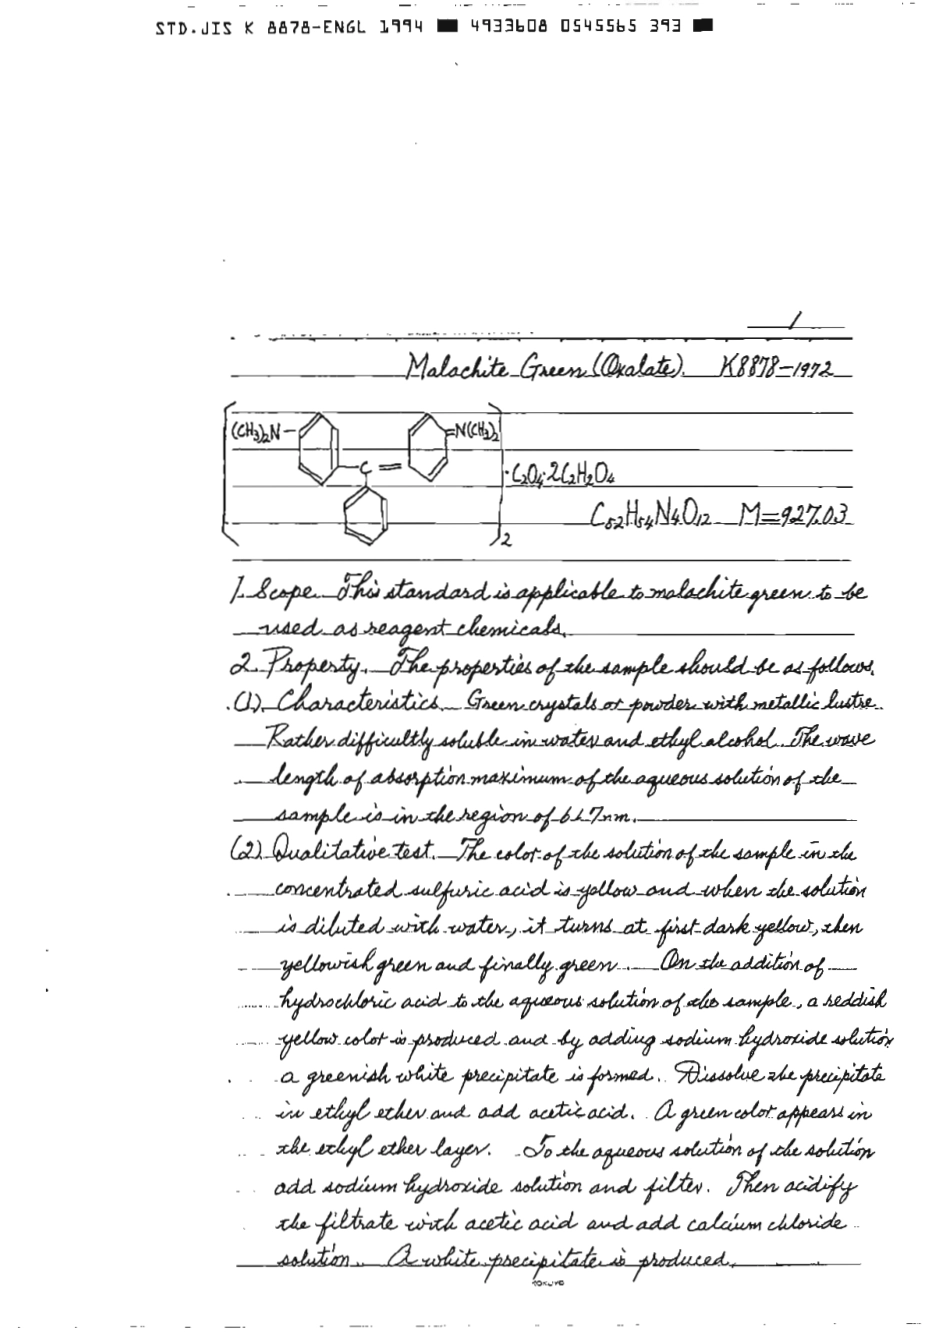 STD.JIS K 8878-ENGL 1994 ■ 4933608 0545565 393 ■
1
Malachite Green (Oxalate). K8878-1972
(CH3)2N- =N(CH3)2
C =
·C2O4·2C2H2O4
2
C52H54N4O12 M=927.03
1. Scope. This standard is applicable to malachite green to be
used as reagent chemicals.
2. Property. The properties of the sample should be as follows.
(1). Characteristics. Green crystals or powder with metallic lustre.
Rather difficultly soluble in water and ethyl alcohol. The wave
length of absorption maximum of the aqueous solution of the
sample is in the region of 617nm.
(2) Qualitative test. The color of the solution of the sample in the
concentrated sulfuric acid is yellow and when the solution
is diluted with water, it turns at first dark yellow, then
yellowish green and finally green. On the addition of
hydrochloric acid to the aqueous solution of the sample, a reddish
yellow color is produced and by adding sodium hydroxide solution
a greenish white precipitate is formed. Dissolve the precipitate
in ethyl ether and add acetic acid. A green color appears in
the ethyl ether layer. To the aqueous solution of the solution
add sodium hydroxide solution and filter. Then acidify
the filtrate with acetic acid and add calcium chloride
solution. A white precipitate is produced.
KOKUYO